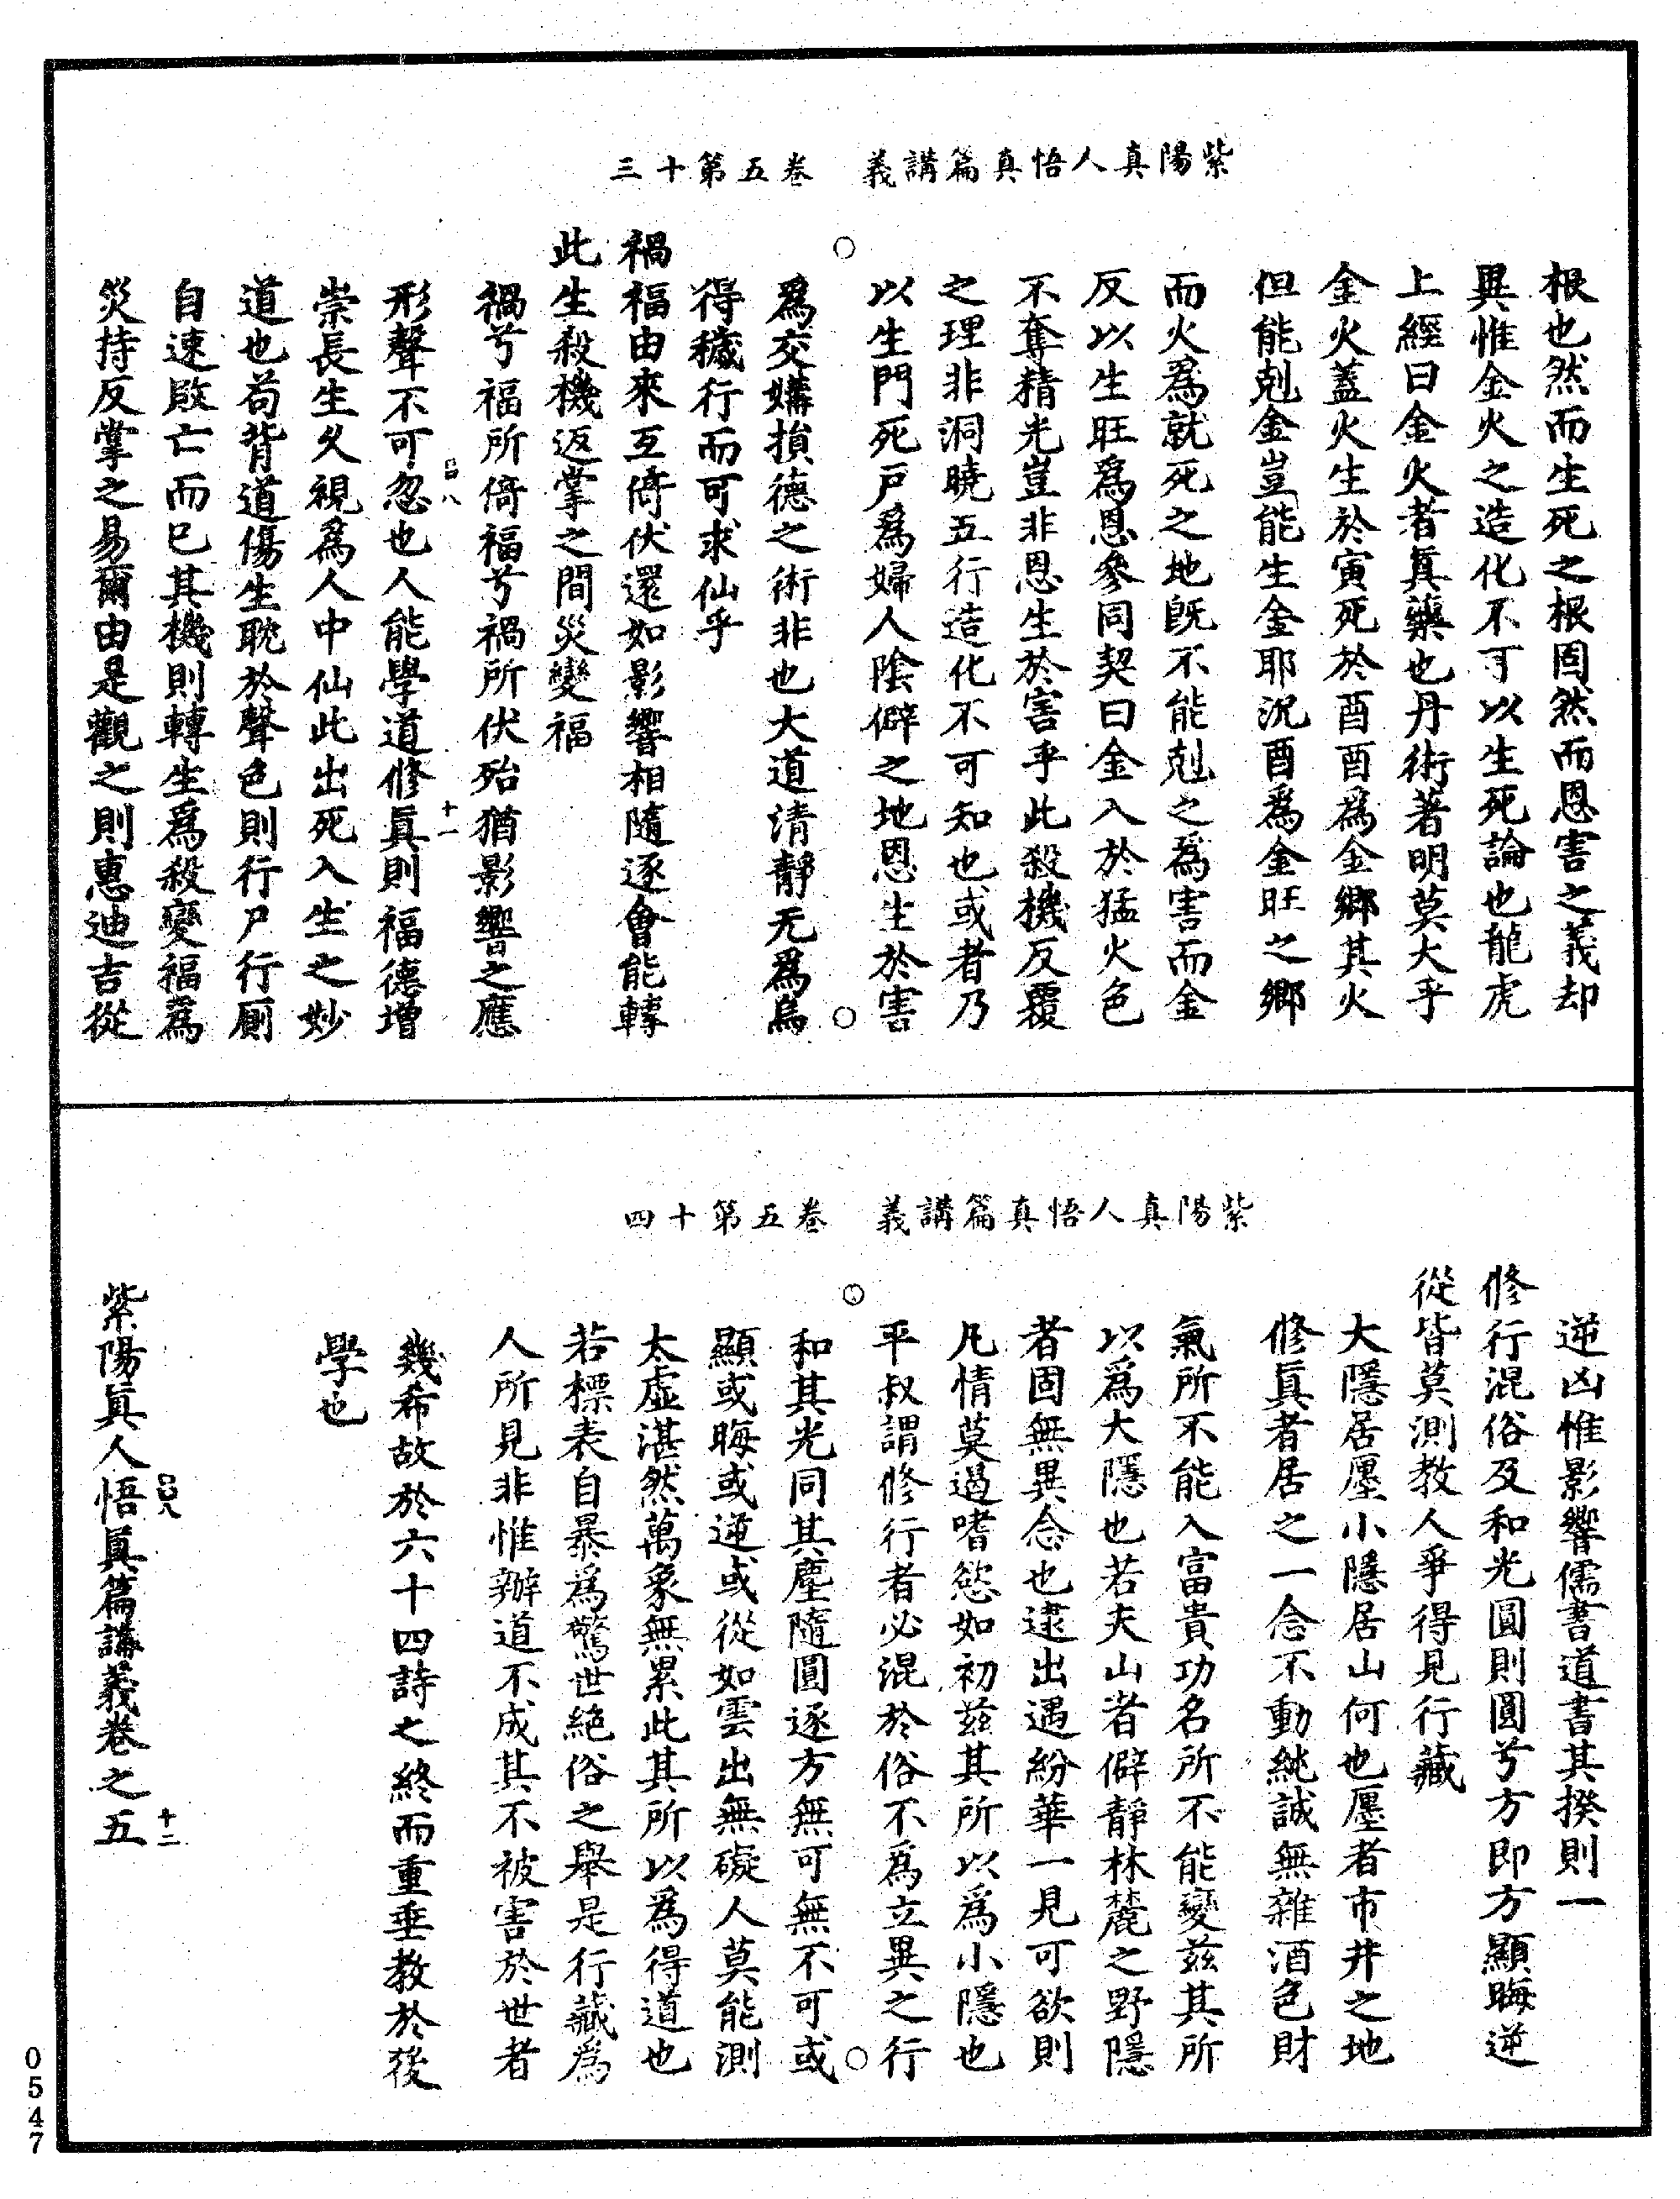 紫陽真人悟真篇講義　卷五第十三
根也然而生死之根固然而恩害之義却
異惟金火之造化不可以生死論也龍虎
上經曰金火者眞藥也丹術著明莫大乎
金火蓋火生於寅死於酉酉爲金鄉其火
但能剋金豈能生金耶沉酉爲金旺之鄉
而火爲就死之地旣不能剋之爲害而金
反以生旺爲恩參同契曰金入於猛火色
不奪精光豈非恩生於害乎此殺機反覆
之理非洞曉五行造化不可知也或者乃
以生門死戶爲婦人陰僻之地恩生於害
爲交媾損德之術非也大道清靜无爲烏
得穢行而可求仙乎
禍福由來互倚伏還如影響相隨逐會能轉
此生殺機返掌之間災變福
禍兮福所倚福兮禍所伏殆猶影響之應
形聲不可忽也人能學道修眞則福德增
崇長生久視爲人中仙此出死入生之妙
道也苟背道傷生耽於聲色則行尸行厠
自速敗亡而已其機則轉生爲殺變福爲
災持反掌之易爾由是觀之則惠迪吉從
紫陽真人悟真篇講義　卷五第十四
逆凶惟影響儒書道書其揆則一
修行混俗及和光圓則圓兮方即方顯晦逆
從皆莫測教人爭得見行藏
大隱居廛小隱居山何也廛者市井之地
修眞者居之一念不動純誠無雜酒色財
氣所不能入富貴功名所不能變茲其所
以爲大隱也若夫山者僻靜林麓之野隱
者固無異念也逮出遇紛華一見可欲則
凡情莫過嗜慾如初茲其所以爲小隱也
平叔謂修行者必混於俗不爲立異之行
和其光同其塵隨圓逐方無可無不可或
顯或晦或逆或從如雲出無礙人莫能測
太虛湛然萬象無累此其所以爲得道也
若標表自暴爲驚世絕俗之舉是行藏爲
人所見非惟辦道不成其不被害於世者
幾希故於六十四詩之終而重垂教於後
學也
紫陽眞人悟眞篇講義卷之五
十二
0547